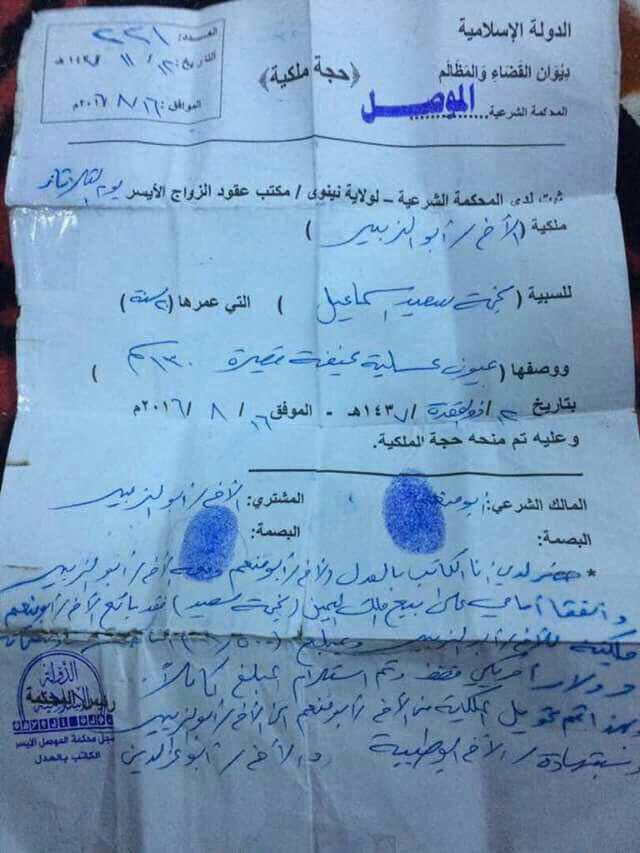 الدولة الإسلامية
ديوان القضاء والمظالم
المحكمة الشرعية................
الموصل
﴿حجة ملكية﴾
العدد: ٢٢١
التاريخ: ١٢/ ١١ /١٤٣٧هـ
الموافق: ١٦/ ٨ /٢٠١٦م
ثبت لدى المحكمة الشرعية – لولاية نينوى / مكتب عقود الزواج الأيسر يوم
ملكية ( الأخ / أبو الزبير )
للسبية ( نجمة سعيد اسماعيل ) التي عمرها ( سنة)
ووصفها ( عيون عسلية قصيرة ١٣٠ سم )
بتاريخ / ذو القعدة / ١٤٣٧هـ - الموفق ١٦ / ٨ / ٢٠١٦م
وعليه تم منحه حجة الملكية.
المالك الشرعي: أبو منعم
المشتري: الأخ / أبو الزبير
البصمة:
البصمة:
* حضر لدي أنا الكاتب بالعدل الأخ / أبو منعم ومعه أخ / أبو الزبير
واتفقا أمامي على بيع ملك اليمين ( نجمة سعيد ) فقد باع الأخ / أبو منعم
ملكيته للأخ / أبو الزبير وبمبلغ
دولار أمريكي فقط وتم استلام المبلغ كاملاً.
وبهذا تم تحويل الملكية من الأخ / أبو منعم الى الأخ / أبو الزبير
وبشهادة / الأخ و الأخ / أبو عز الدين
الدولة
الإسلامية
سجل محكمة الموصل الأيسر
الكاتب بالعدل